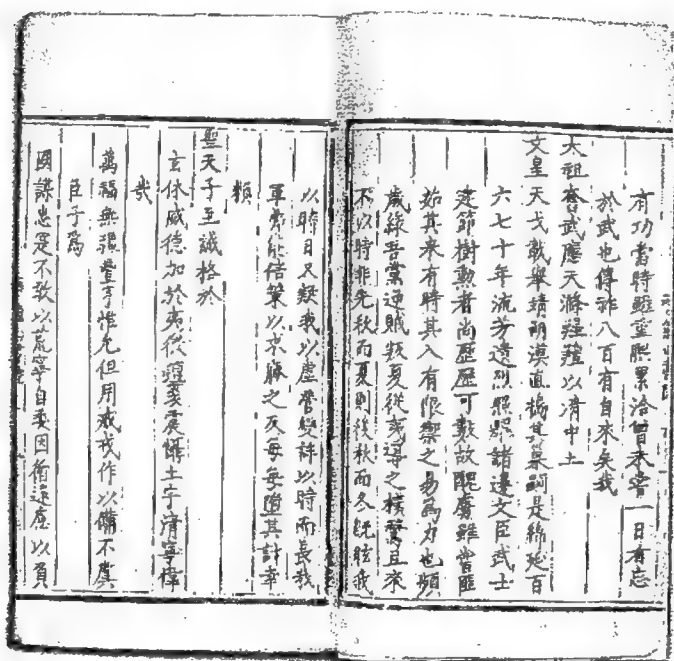 有功當時雖重熙累洽曾未嘗一日有忘
於武也傳祚八百有自來矣我
太祖奮武應天滌腥羶以清中土
文皇天戈載舉靖朔漠直搗其巢嗣是綿延百
六七十年流芳遺烈照照諸邊文臣武士
建節樹勲者尚歷歷可數故醜虜雖嘗匪
茹其來有時其入有限禦之易為力也頻
歲綠吾黨逆賊類夏從夷導之猾夏且來
不以時非先秋而夏則後秋而冬既眩我
以時日又疑我以虛營變詐以時而長我
軍常能倍策以求勝之反每每墮其計幸
賴
聖天子至誠格於
玄休威德加於夷狄震懾土宇清寧偉
哉
萬福無疆豐亨惟允但用戒戎作以備不虞
臣子為
國謀忠是不敢以荒寧自委因備述應以負